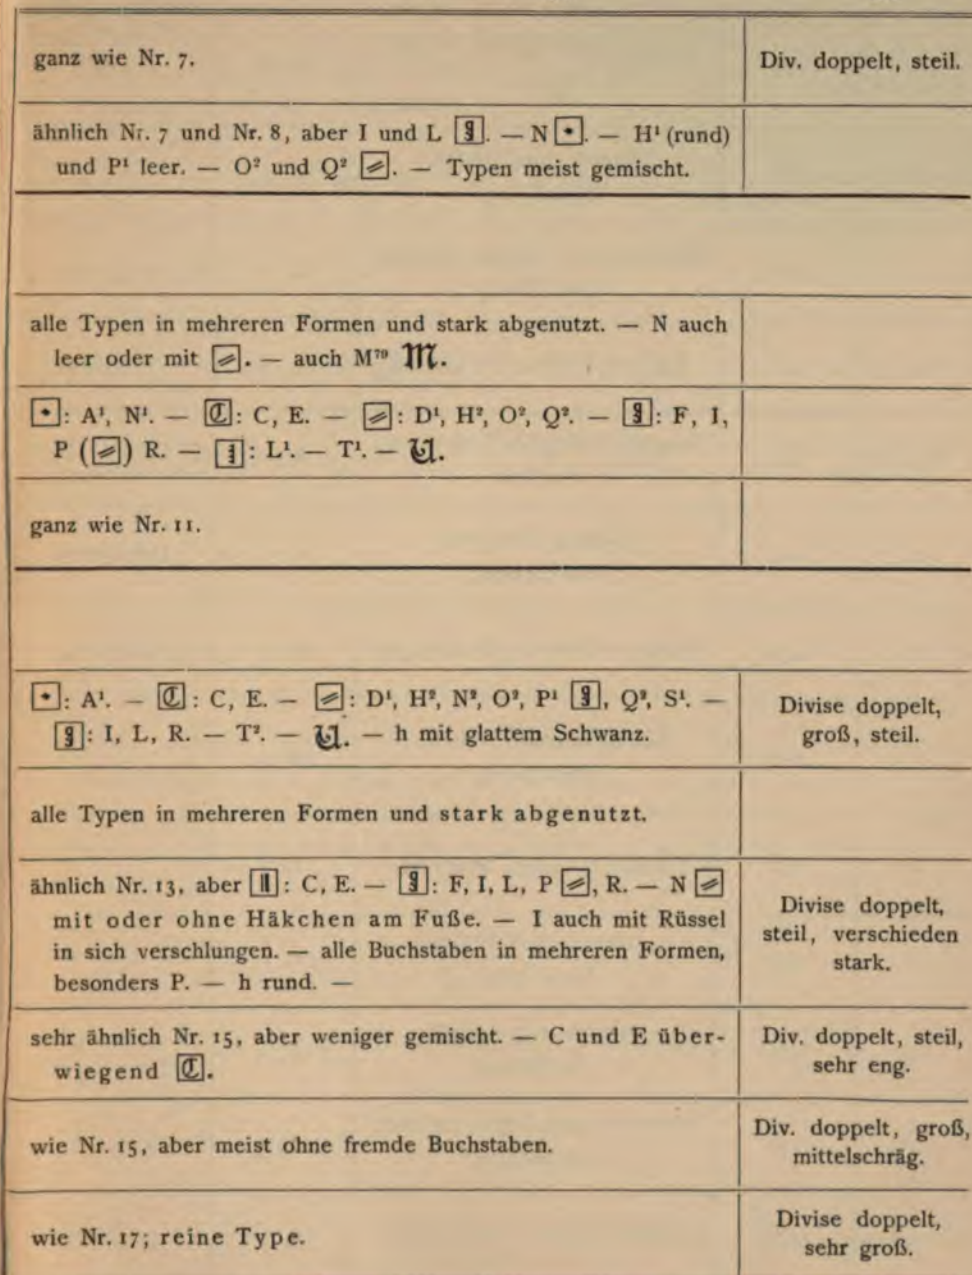 ganz wie Nr. 7.
Div. doppelt, steil.
ähnlich Nr. 7 und Nr. 8, aber I und L . — N . — H¹ (rund)
und P¹ leer. — O² und Q² . — Typen meist gemischt.
alle Typen in mehreren Formen und stark abgenutzt. — N auch
leer oder mit . — auch M⁷⁹ 𝔐.
: A¹, N¹. — : C, E. — : D¹, H², O², Q². — : F, I,
P () R. — : L¹. — T¹. — 𝔘.
ganz wie Nr. 11.
: A¹. — : C, E. — : D¹, H², N², O², P¹ , Q², S¹. —
: I, L, R. — T². — 𝔘. — h mit glattem Schwanz.
Divise doppelt,
groß, steil.
alle Typen in mehreren Formen und stark abgenutzt.
ähnlich Nr. 13, aber : C, E. — : F, I, L, P , R. — N
mit oder ohne Häkchen am Fuße. — I auch mit Rüssel
in sich verschlungen. — alle Buchstaben in mehreren Formen,
besonders P. — h rund. —
Divise doppelt,
steil, verschieden
stark.
sehr ähnlich Nr. 15, aber weniger gemischt. — C und E über-
wiegend .
Div. doppelt, steil,
sehr eng.
wie Nr. 15, aber meist ohne fremde Buchstaben.
Div. doppelt, groß,
mittelschräg.
wie Nr. 17; reine Type.
Divise doppelt,
sehr groß.